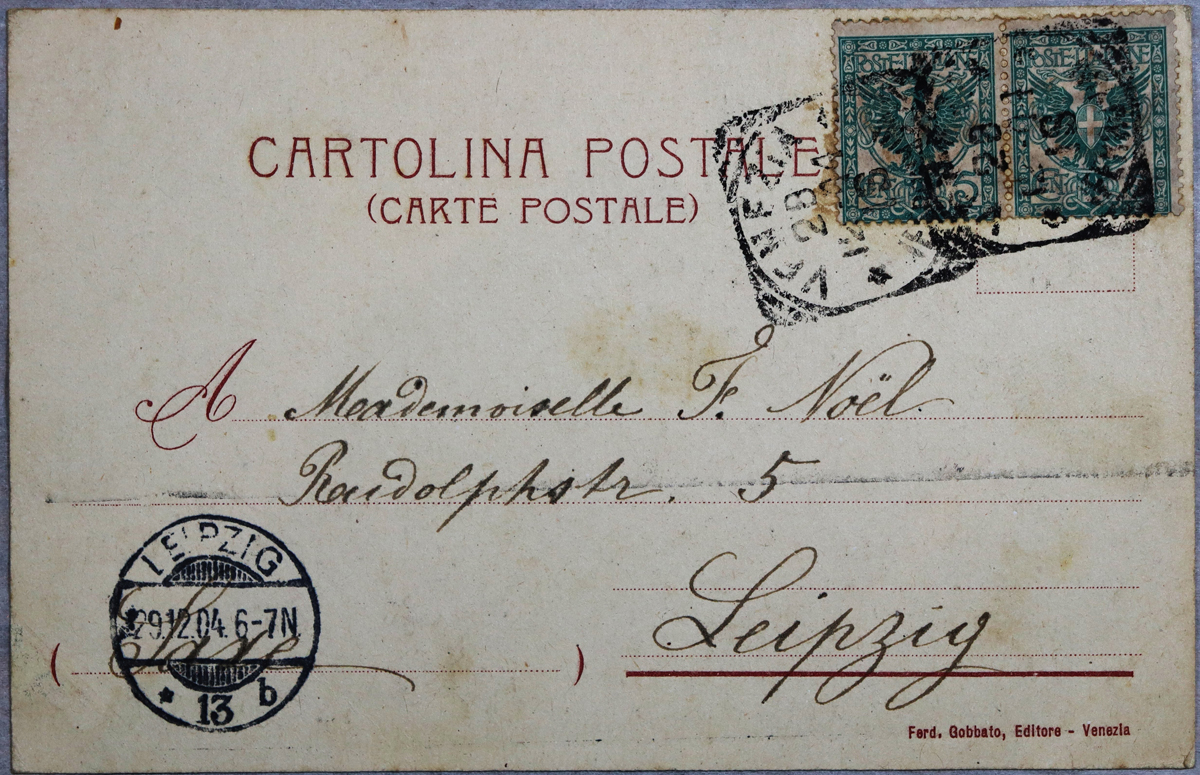 CARTOLINA POSTALE
(CARTE POSTALE)
POSTE ITALIANE
POSTE ITALIANE
VENEZIA
28
A Mademoiselle F. Noël.
Raudolphstr. 5
Leipzig
Saxe
LEIPZIG
29.12.04. 6-7N
* 13 b
Ferd. Gobbato, Editore - Venezia